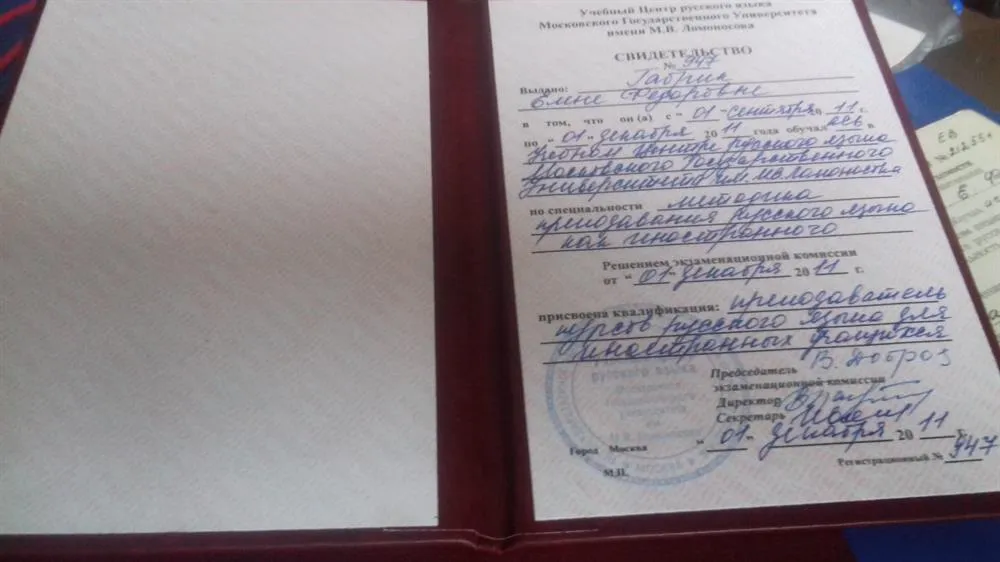 Учебный Центр русского языка
Московского Государственного Университета
имени М.В. Ломоносова
СВИДЕТЕЛЬСТВО
№ 947
Выдано: Габрик
Елене Федоровне
в том, что он (а) с "01" сентября 2011 г.
по "01" декабря 2011 года обучалась в
Учебном Центре русского языка
Московского Государственного
Университета им. М.В. Ломоносова
по специальности методика
преподавания русского языка
как иностранного
Решением экзаменационной комиссии
от "01" декабря 2011 г.
присвоена квалификация: преподаватель
курсов русского языка для
иностранных учащихся
Председатель В. Добров
экзаменационной комиссии
Директор
Секретарь
Город Москва "01" декабря 2011 г.
М.П. Регистрационный № 947
русского языка
ЕВ